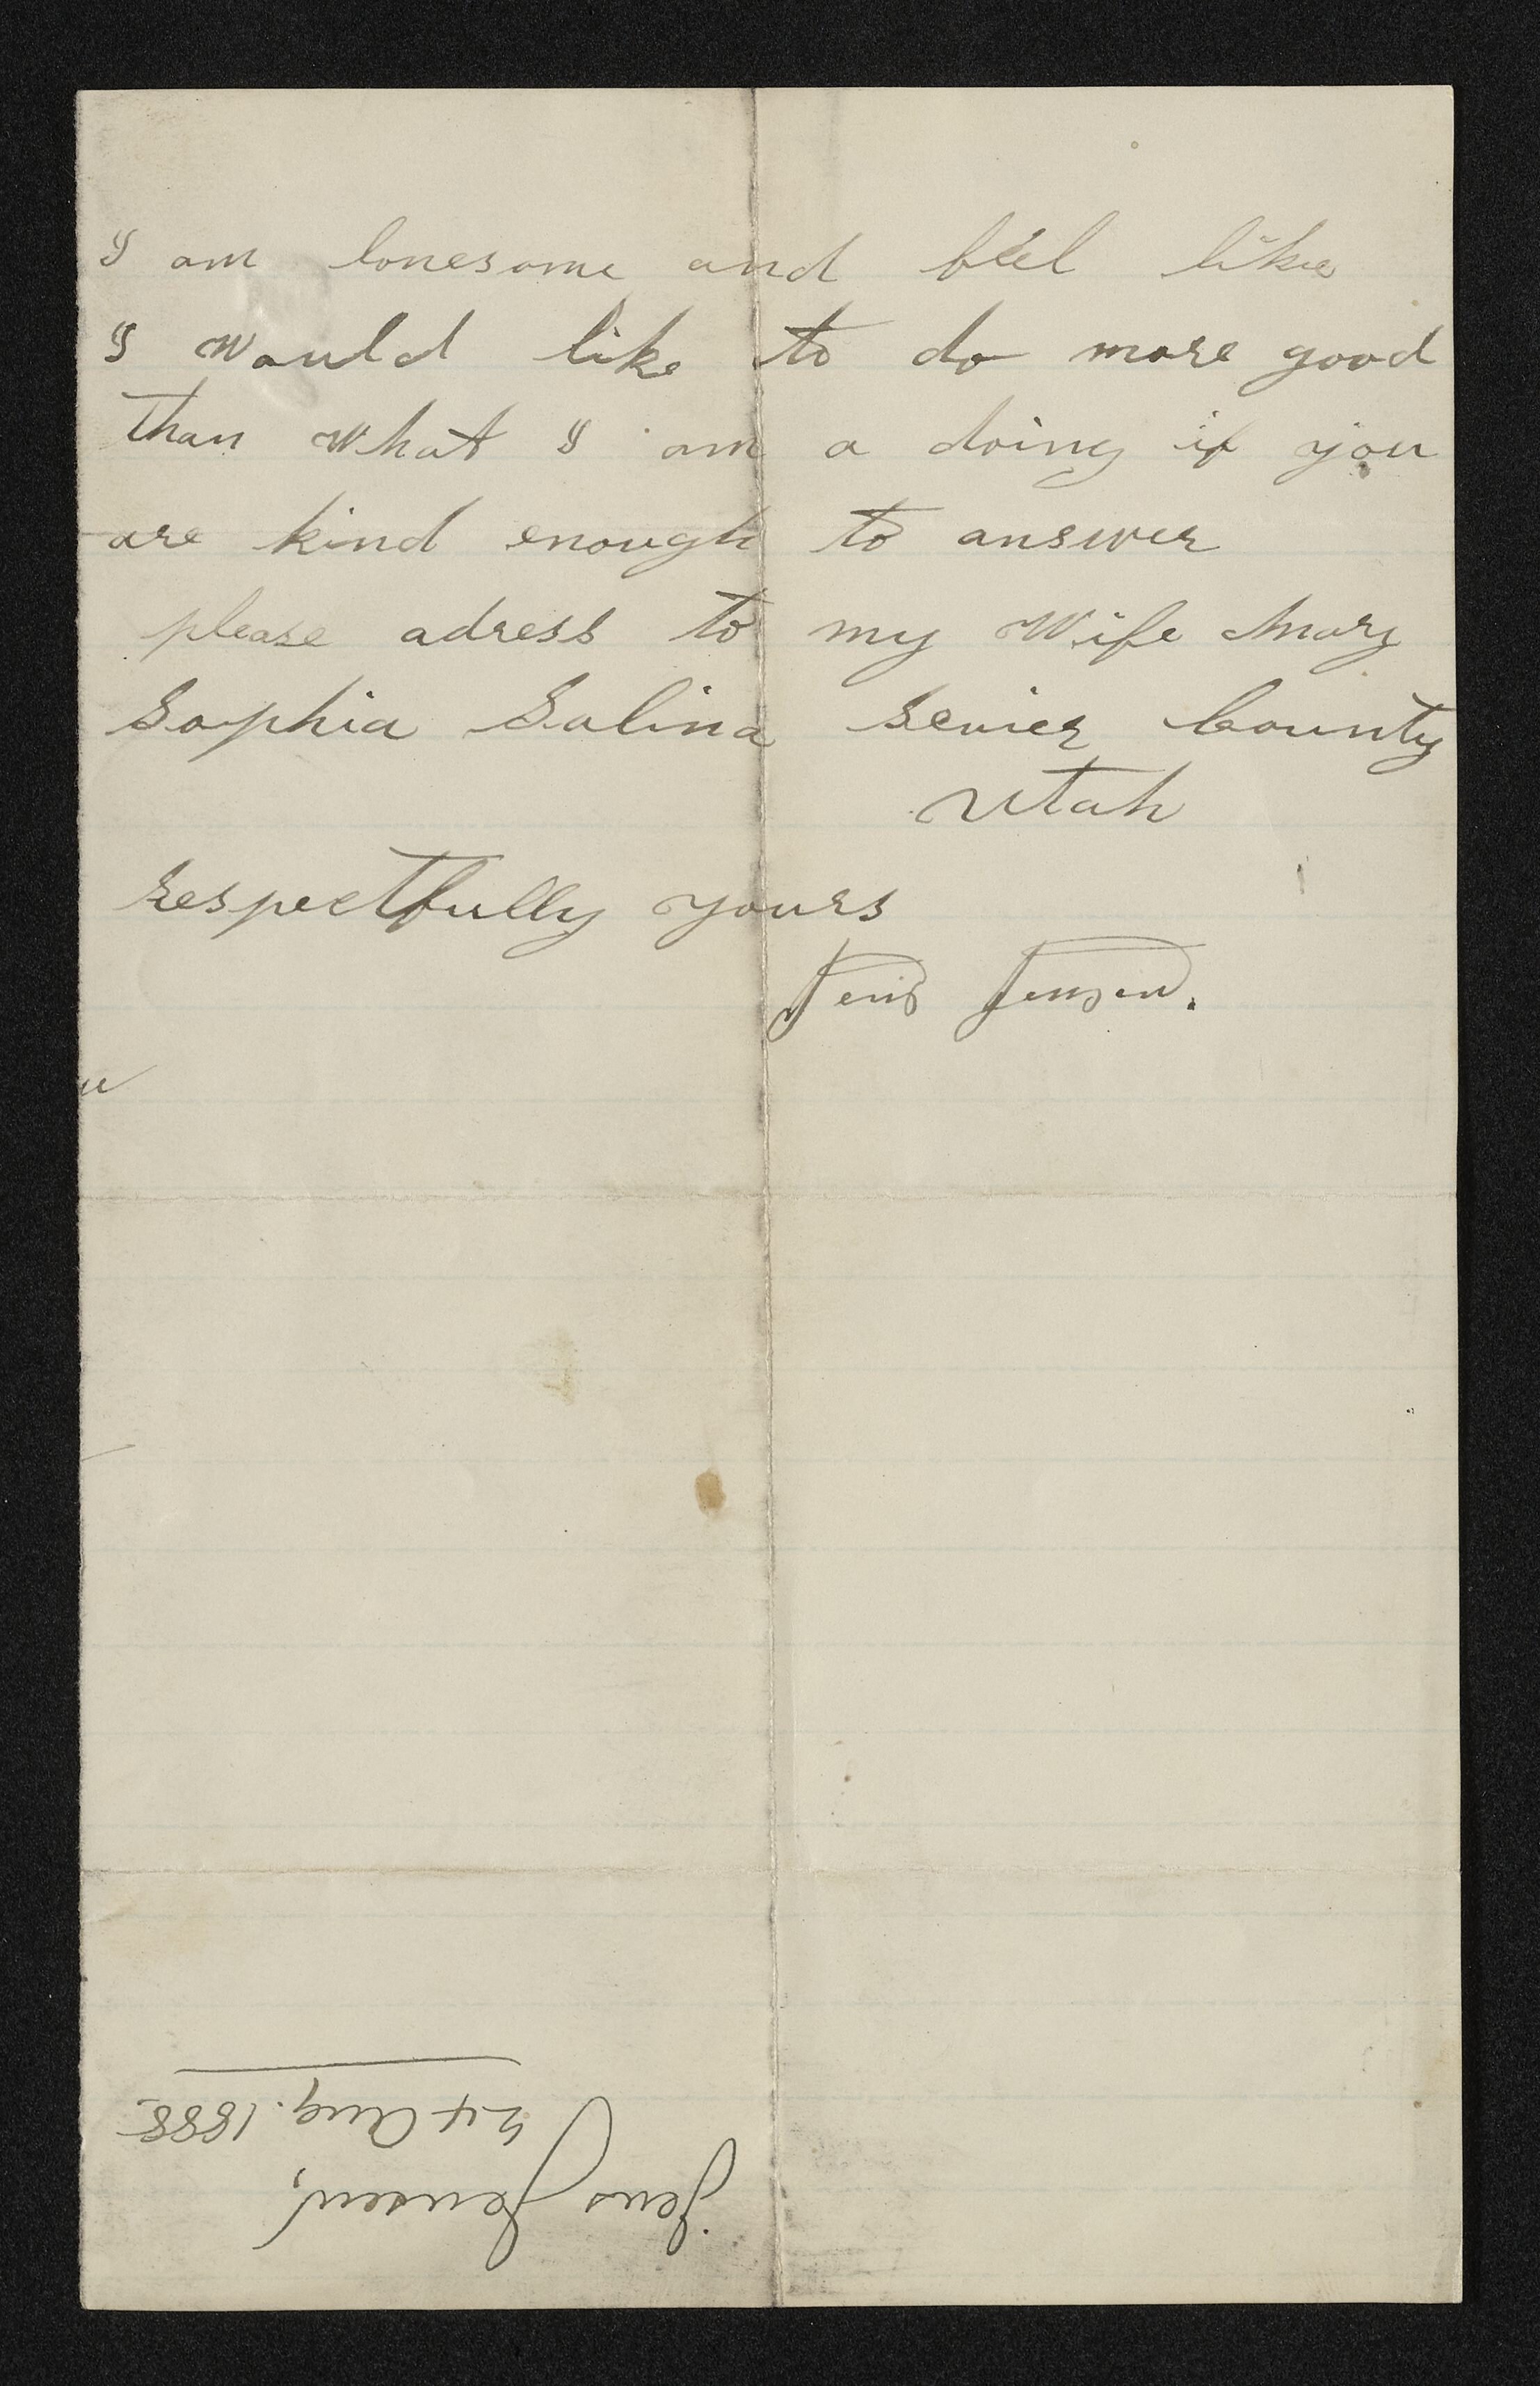 I am lonesome and feel like
I would like to do more good
than what I am a doing if you
are kind enough to answer
please adress to my Wife Mary
Sophia Salina Sevier County
Utah
respectfully yours
Jens Jensen.
Jens Jensen,
24 Aug. 1888